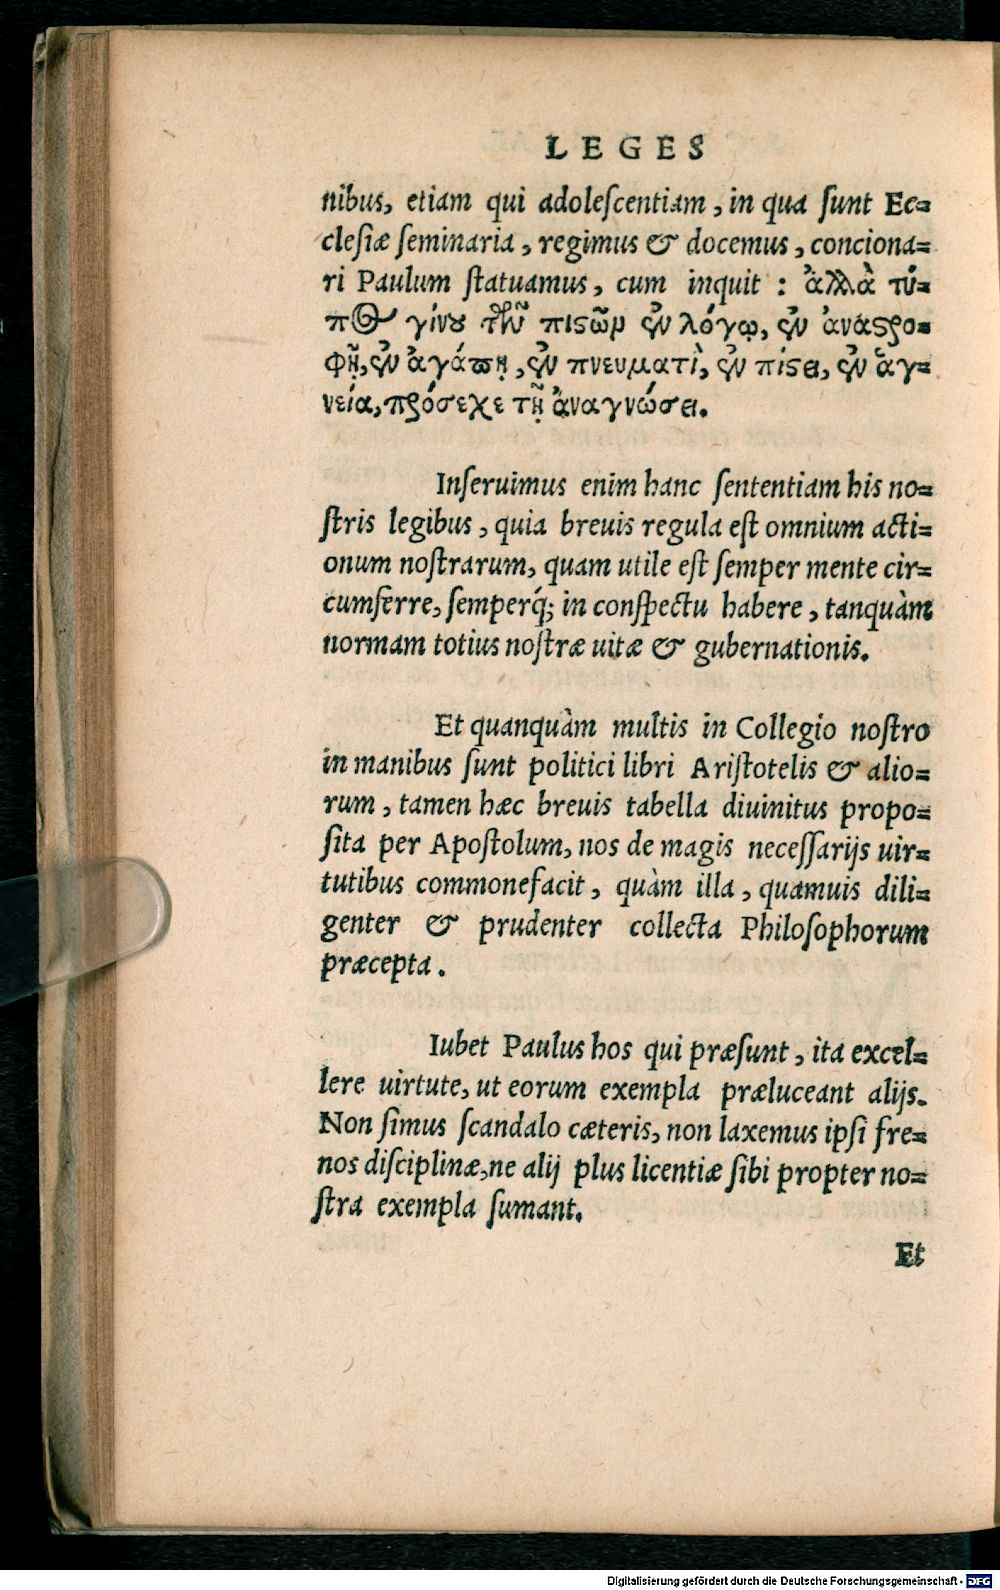 LEGES
nibus, etiam qui adolescentiam, in qua sunt Ec=
clesiæ seminaria, regimus & docemus, conciona=
ri Paulum statuamus, cum inquit : ἀλλὰ τύ=
πος γίνου τῶν πιστῶν ἐν λόγῳ, ἐν ἀναστρο=
φῇ, ἐν ἀγάπῃ, ἐν πνευματὶ, ἐν πίστει, ἐν ἁγ=
νεία, πρόσεχε τῇ ἀναγνώσει.
Inseruimus enim hanc sententiam his no=
stris legibus, quia breuis regula est omnium acti=
onum nostrarum, quam utile est semper mente cir=
cumferre, semperq́; in conspectu habere, tanquàm
normam totius nostræ uitæ & gubernationis.
Et quanquàm multis in Collegio nostro
in manibus sunt politici libri Aristotelis & alio=
rum, tamen hæc breuis tabella diuinitus propo=
sita per Apostolum, nos de magis necessarijs uir=
tutibus commonefacit, quàm illa, quamuis dili=
genter & prudenter collecta Philosophorum
præcepta.
Iubet Paulus hos qui præsunt, ita excel=
lere uirtute, ut eorum exempla præluceant alijs.
Non simus scandalo cæteris, non laxemus ipsi fre=
nos disciplinæ, ne alij plus licentiæ sibi propter no=
stra exempla sumant.
Et
Digitalisierung gefördert durch die Deutsche Forschungsgemeinschaft - DFG